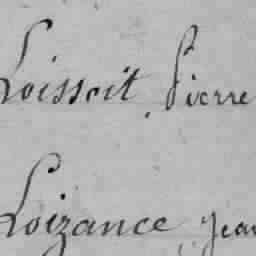 Loissoit, Pierre
Loizance, Jean